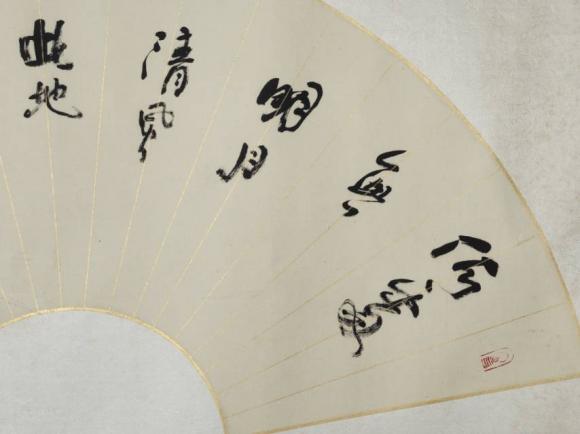 何處
無
明月
清風
此地